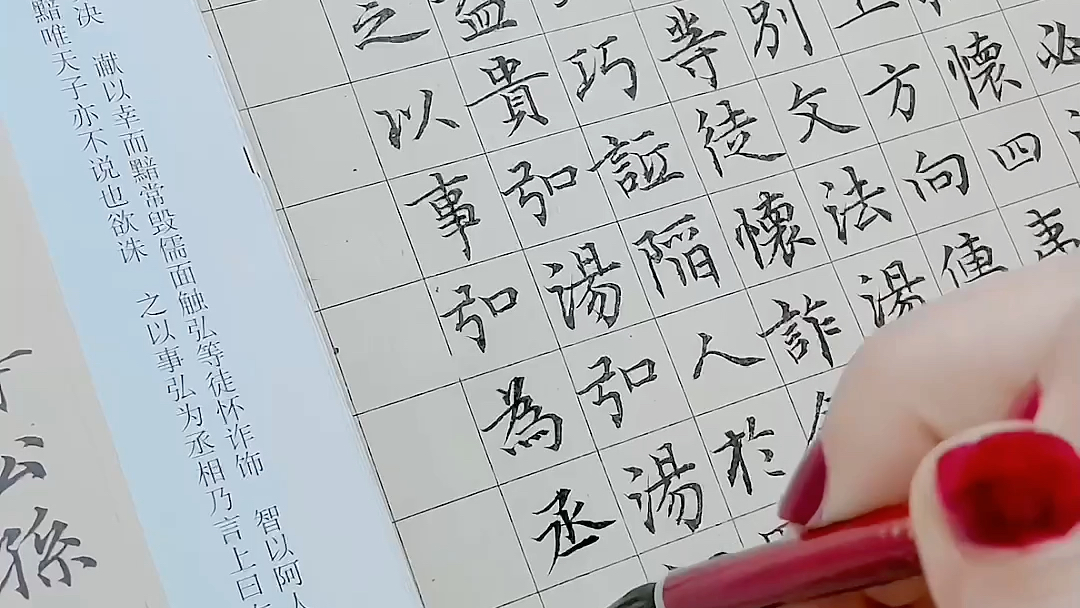 必
懷四
上方向傳
別文法湯
等徒懷詐
巧陷人於
益貴弘湯弘湯
之以事弘為丞
决 谳以幸而黯常毁儒面触弘等徒怀诈饰 智以阿人
黯唯天子亦不说也欲诛 之以事弘为丞相乃言上曰
公孫